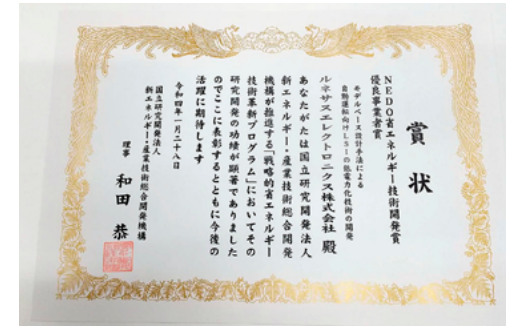 賞状
NEDO省エネルギー技術開発賞
優良事業者賞
モデルベース設計手法による
自動運転向けLSIの低電力化技術の開発
ルネサスエレクトロニクス株式会社 殿
あなたがたは国立研究開発法人
新エネルギー・産業技術総合開発
機構が推進する「戦略的省エネルギー
技術革新プログラム」においてその
研究開発の功績が顕著でありました
のでここに表彰するとともに今後の
活躍に期待します
令和四年一月二十八日
国立研究開発法人
新エネルギー・産業技術総合開発機構
理事 和田 恭